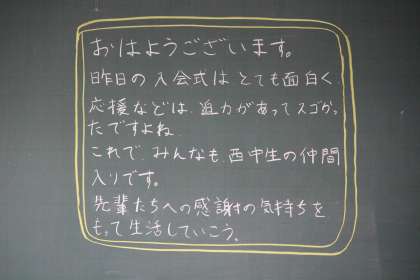 おはようございます。
昨日の入会式はとても面白く、
応援などは、迫力があってスゴかっ
たですよね
これで、みんなも、西中生の仲間
入りです。
先輩たちへの感謝の気持ちを
もって生活していこう。